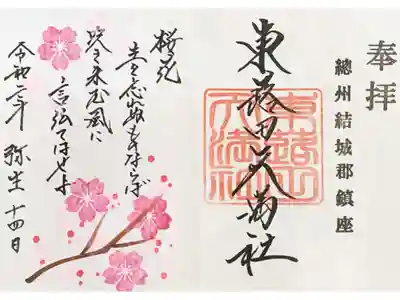 奉拝
總州結城郡鎮座
東蕗田天満社
東蕗田天満社
桜花
主を忘れぬものならば
吹き来む風に
言伝てはせよ
令和二年 弥生 十四日